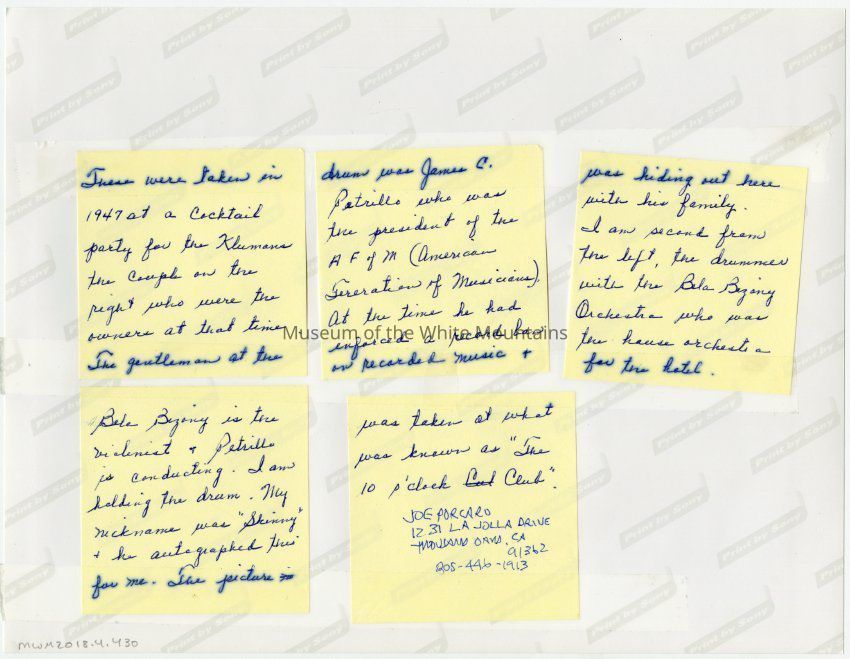 These were taken in
1947 at a Cocktail
party for the Klumans
the couple on the
right who were the
owners at that time
The gentleman at the
drum was James C.
Petrillo who was
the president of the
A F of M (American
Fereration of Musicians).
At the time he had
enforced a record ban
on recorded music +
was hiding out here
with his family.
I am second from
the left, the drummer
with the Bela Bizony
Orchestra who was
the house orchestra
for the hotel.
Bela Bizony is the
violinist + Petrillo
is conducting. I am
holding the drum. My
nickname was "Skinny"
+ he autographed this
for me. The picture
was taken at what
was known as "The
10 o'clock Club".
JOE PORCARO
1231 LA JOLLA DRIVE
THOUSAND OAKS, CA
91362
805-446-1913
Museum of the White Mountains
MWM2018.4.430
Print by Sony